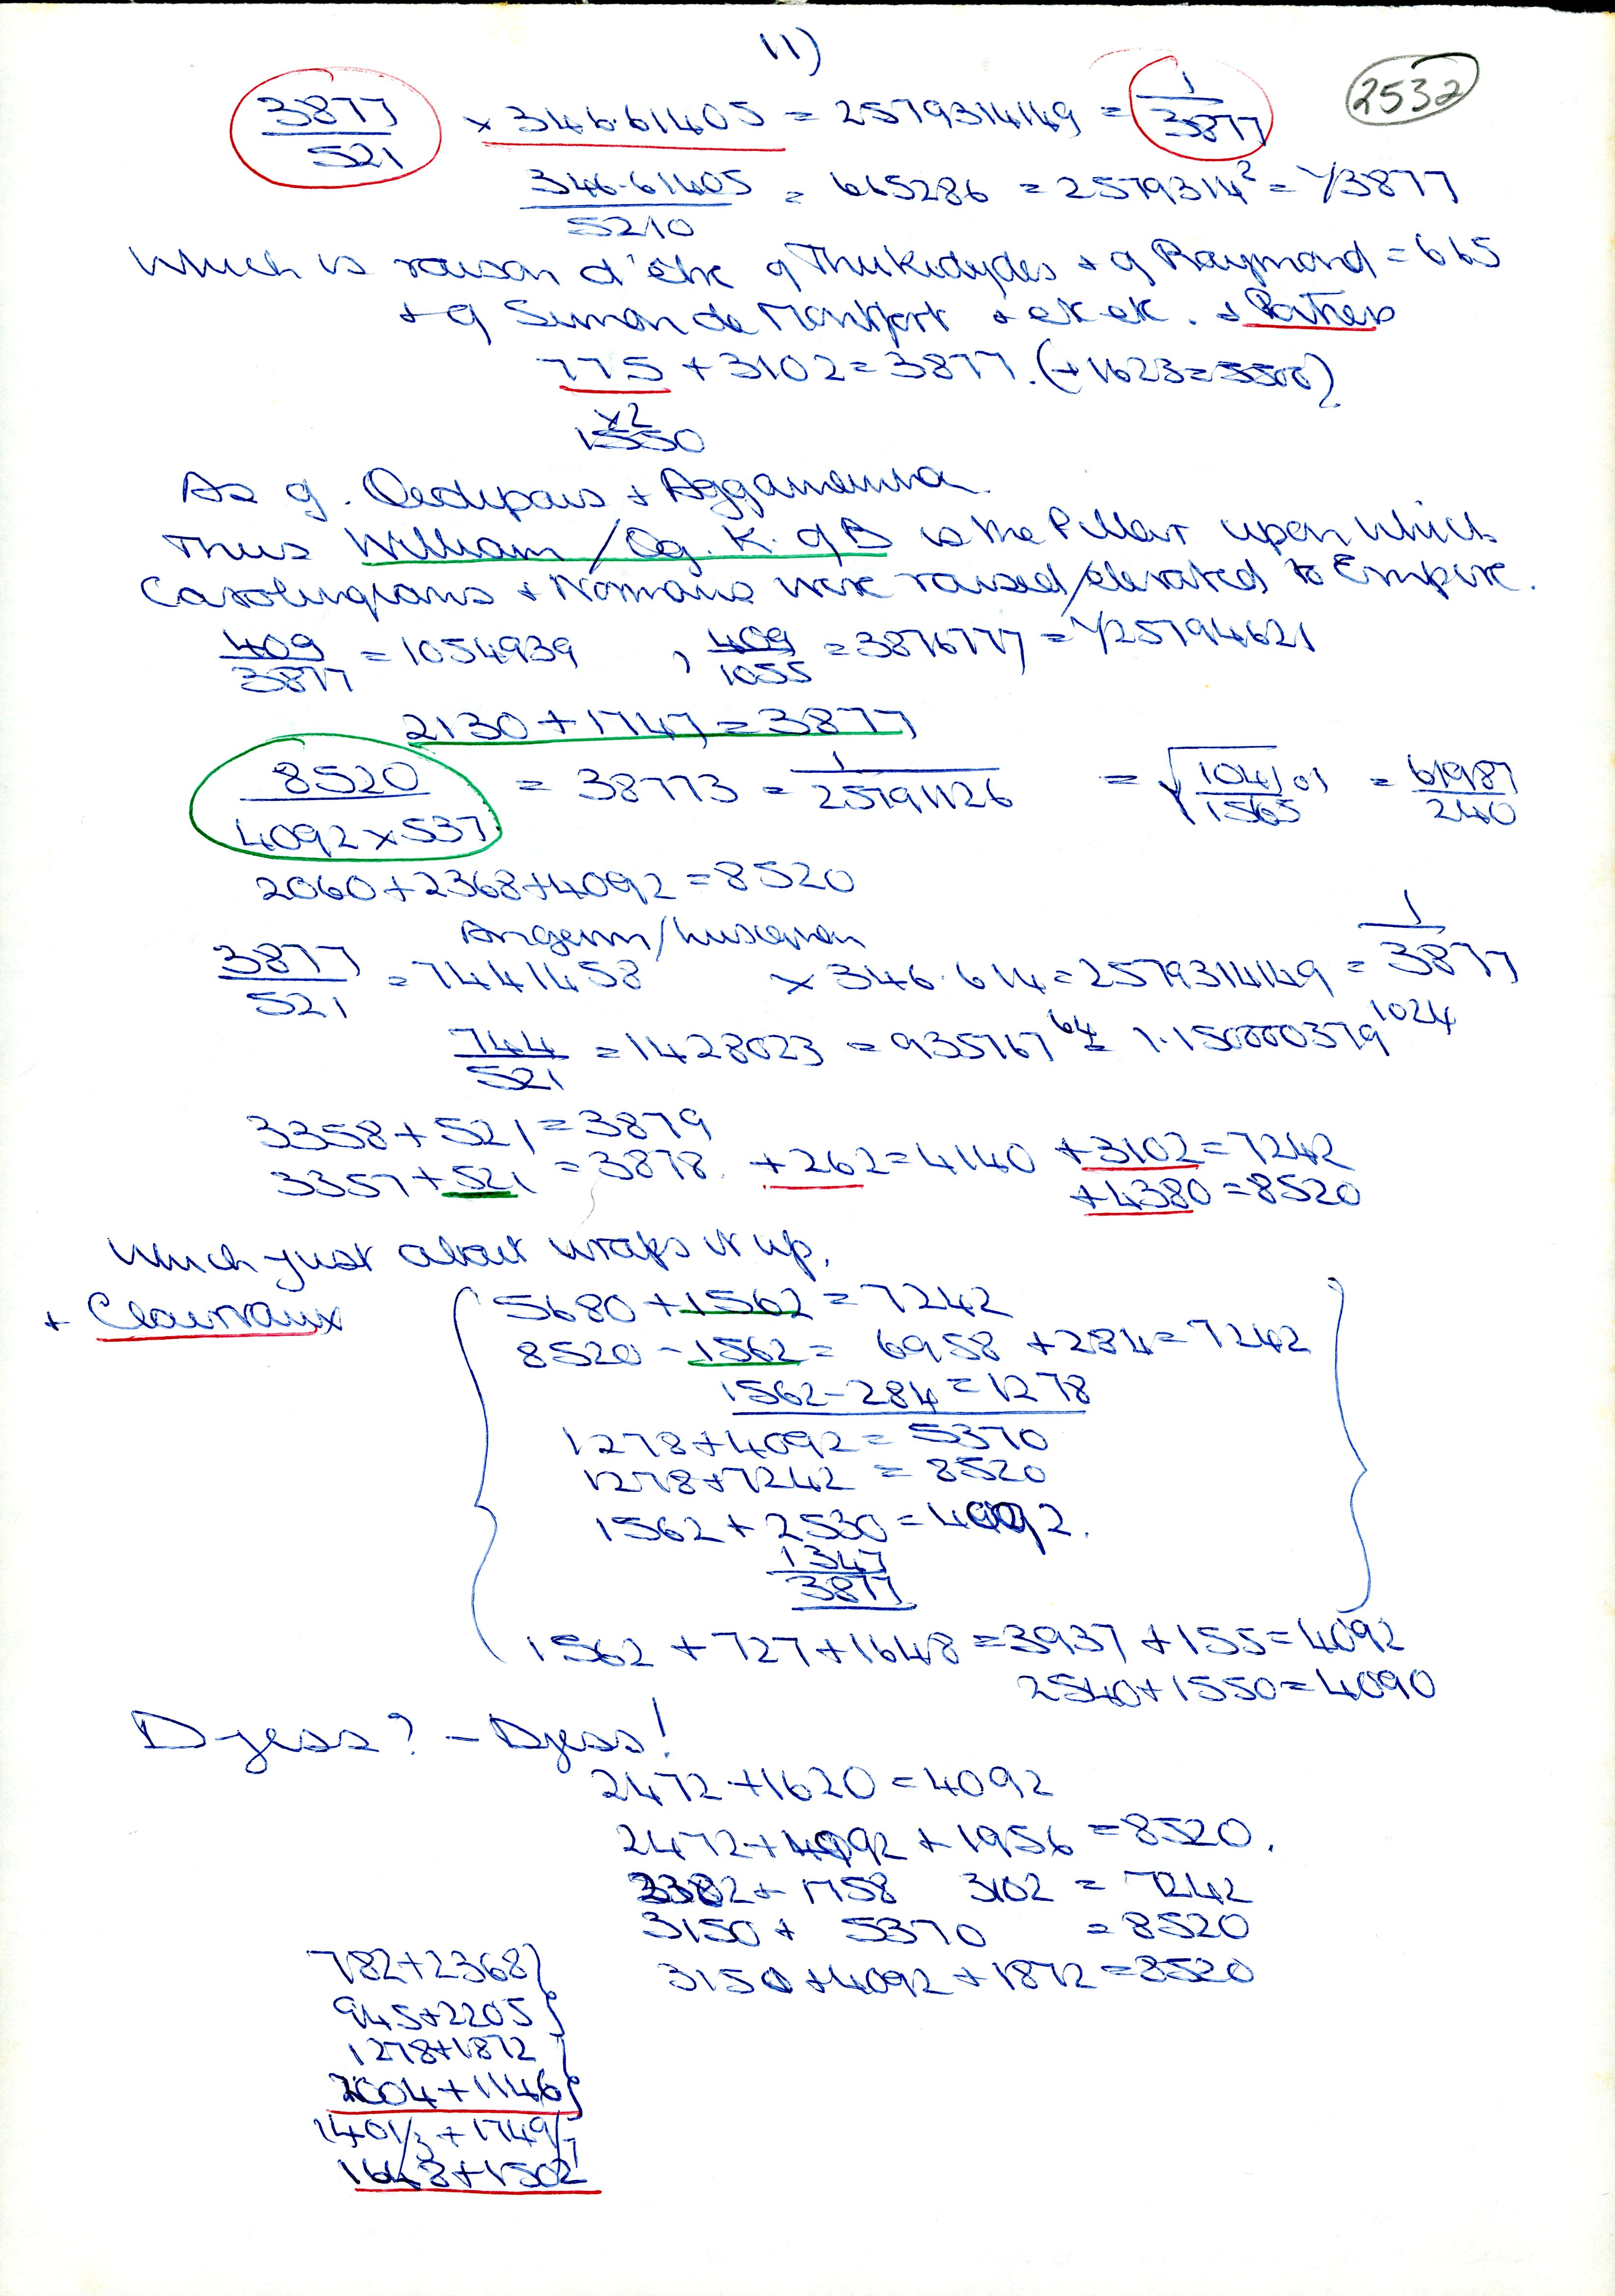 11)
2532
3877/521 × 346.61405 = 2579314149 = 1/3877
346.61405/5210 = 665286 = 2579314² = 1/3877
Which is raison d'être of Thukidydes + of Raymond = 665
+ of Simon de Montfort + etc etc. +
775 + 3102 = 3877. (+1623 = 5500)
×2
1550
As of. Oedipous + Aggamemna.
Thus William/Og. K. of B is the Pillar upon which
Carolingians + Normans were raised/elevated to Empire.
409/3877 = 1054939 , 409/1055 = 3876777 = 1/25794621
2130 + 1747 = 3877
8520/4092×537 = 38773 = 1/25791126 = √1041.01/1565 = 61987/240
2060+2368+4092 = 8520
Angevin/
3877/521 = 7441458 × 346.614 = 2579314149 = 1/3877
744/521 = 1428023 = 935767⁶⁴ = 1.150000379¹⁰²⁴
3358 + 521 = 3879
3357 + 521 = 3878. +262 = 4140 +3102 = 7242
+4380 = 8520
Which just about wraps it up.
+ Clairvaux
5680 + 1562 = 7242
8520 - 1562 = 6958 + 284 = 7242
1562 - 284 = 1278
1278 + 4092 = 5370
1278 + 7242 = 8520
1562 + 2530 = 4092.
1347
3877
1562 + 727 + 1648 = 3937 + 155 = 4092
2540 + 1550 = 4090
Djess? - Djess!
2472 + 1620 = 4092
2472 + 4092 + 1956 = 8520.
2382 + 1758 3102 = 7242
3150 + 5370 = 8520
3150 + 4092 + 1872 = 8520
782+2368}
945+2205}
1278+1872}
2004+1146}
1401/3 + 1749/7
1648+1502